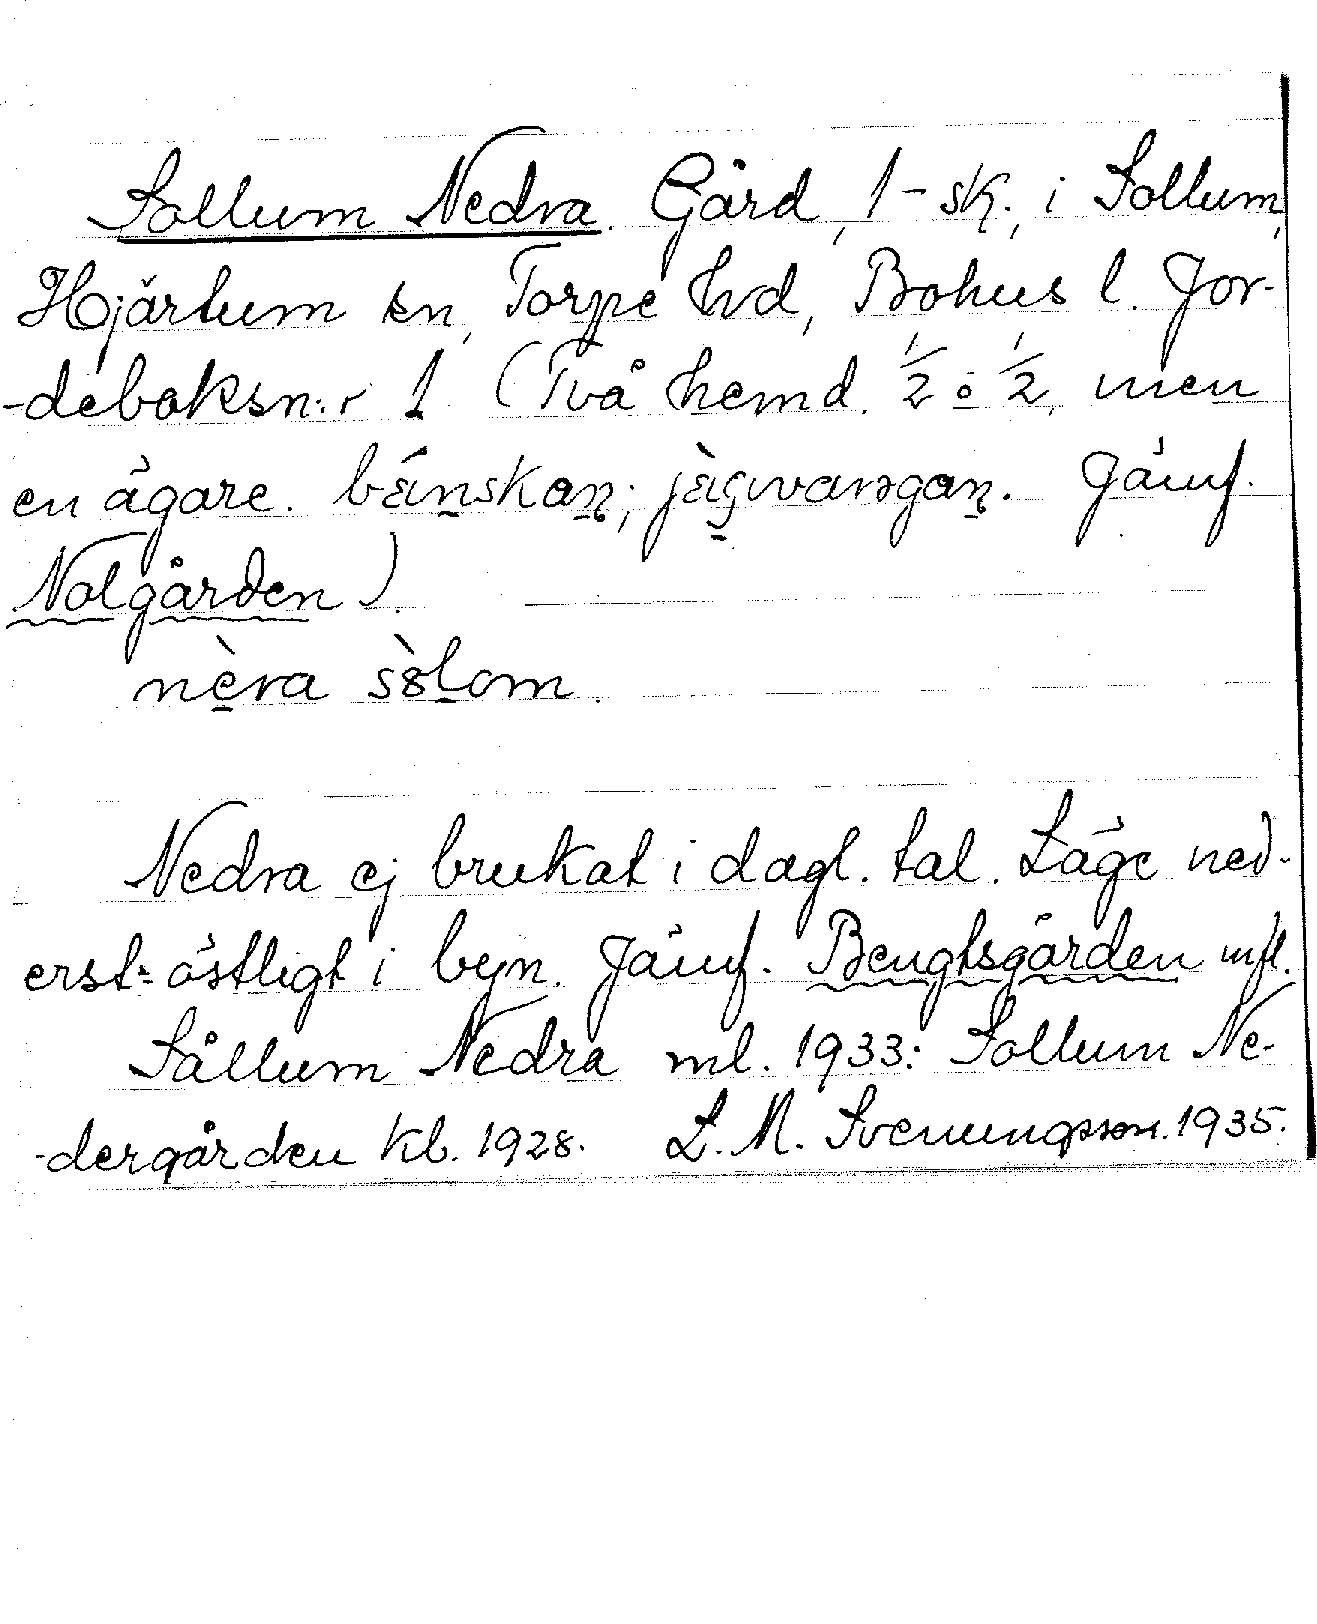 Sollum Nedra. Gård, 1-sk., i Sollum,
Hjärtum sn, Torpe hd, Bohus l. Jor-
-deboksn:r 1 (Två hemd. 1/2 o 1/2, men
en ägare. Jämf.
Nolgården).
nèra sòlom.
Nedra ej brukat i dagl. tal. Läge ned-
erst-östligt i byn. Jämf. Bengtsgården mfl.
Sållum Nedra ml. 1933: Sollum Ne-
-dergården kb. 1928. L. M. Svenungsson. 1935.